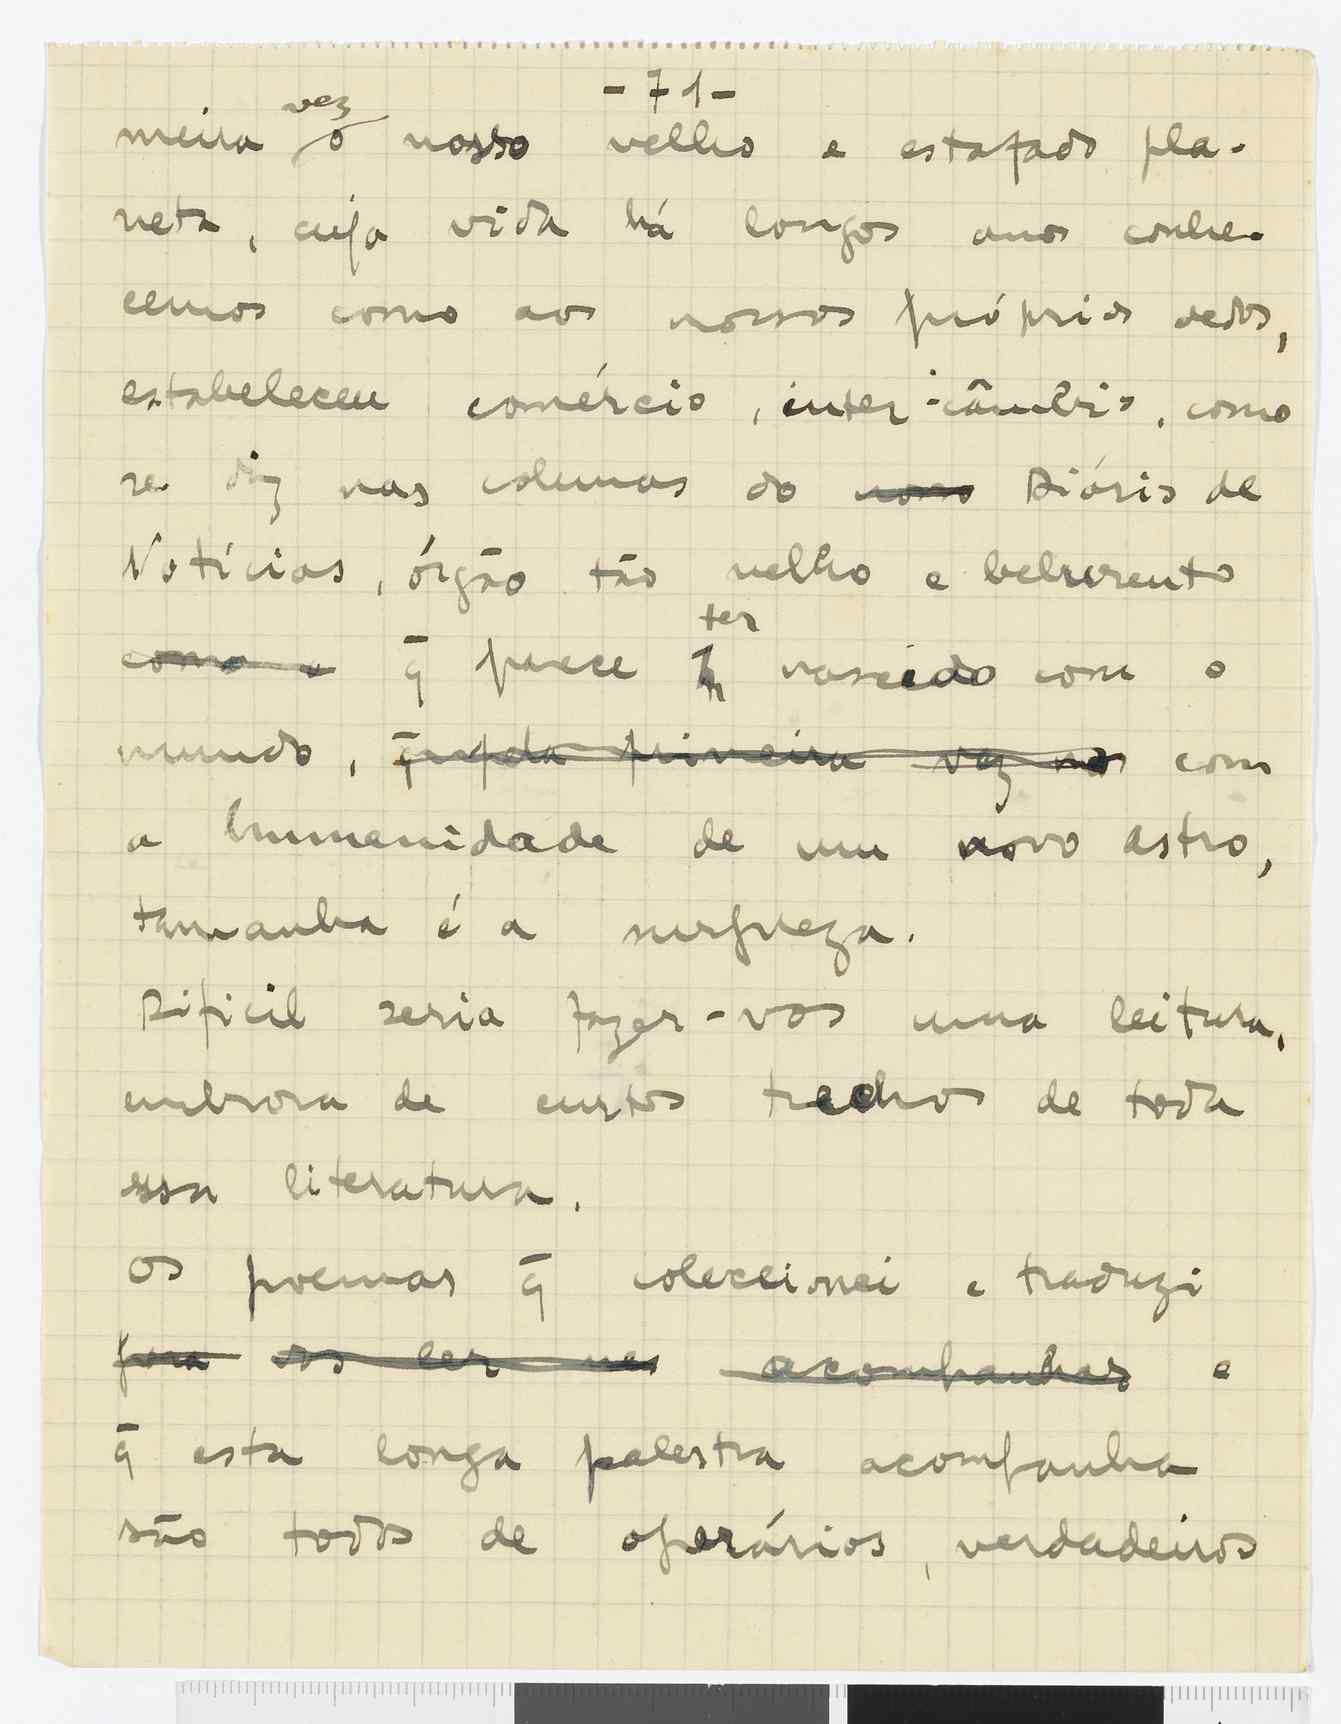 -71-
vez
meira o nosso velho e estafado pla-
neta, cuja vida há longos anos conhe-
cemos como aos nossos próprios dedos,
estabeleceu comércio, inter-câmbio, como
se diz nas colunas do novo Diário de
Notícias, órgão tão velho e belorento
ter
como o q̄ parece nascido com o
mundo, primeira vez no com
a humanidade de um novo astro,
tamanha é a surpreza.
Dificil seria fazer-vos uma leitura,
embora de curtos trechos de toda
essa literatura.
Os poemas q̄ coleccionei e traduzi
para os ler me acompanhar e
q̄ esta longa palestra acompanha
são todos de operários, verdadeiros